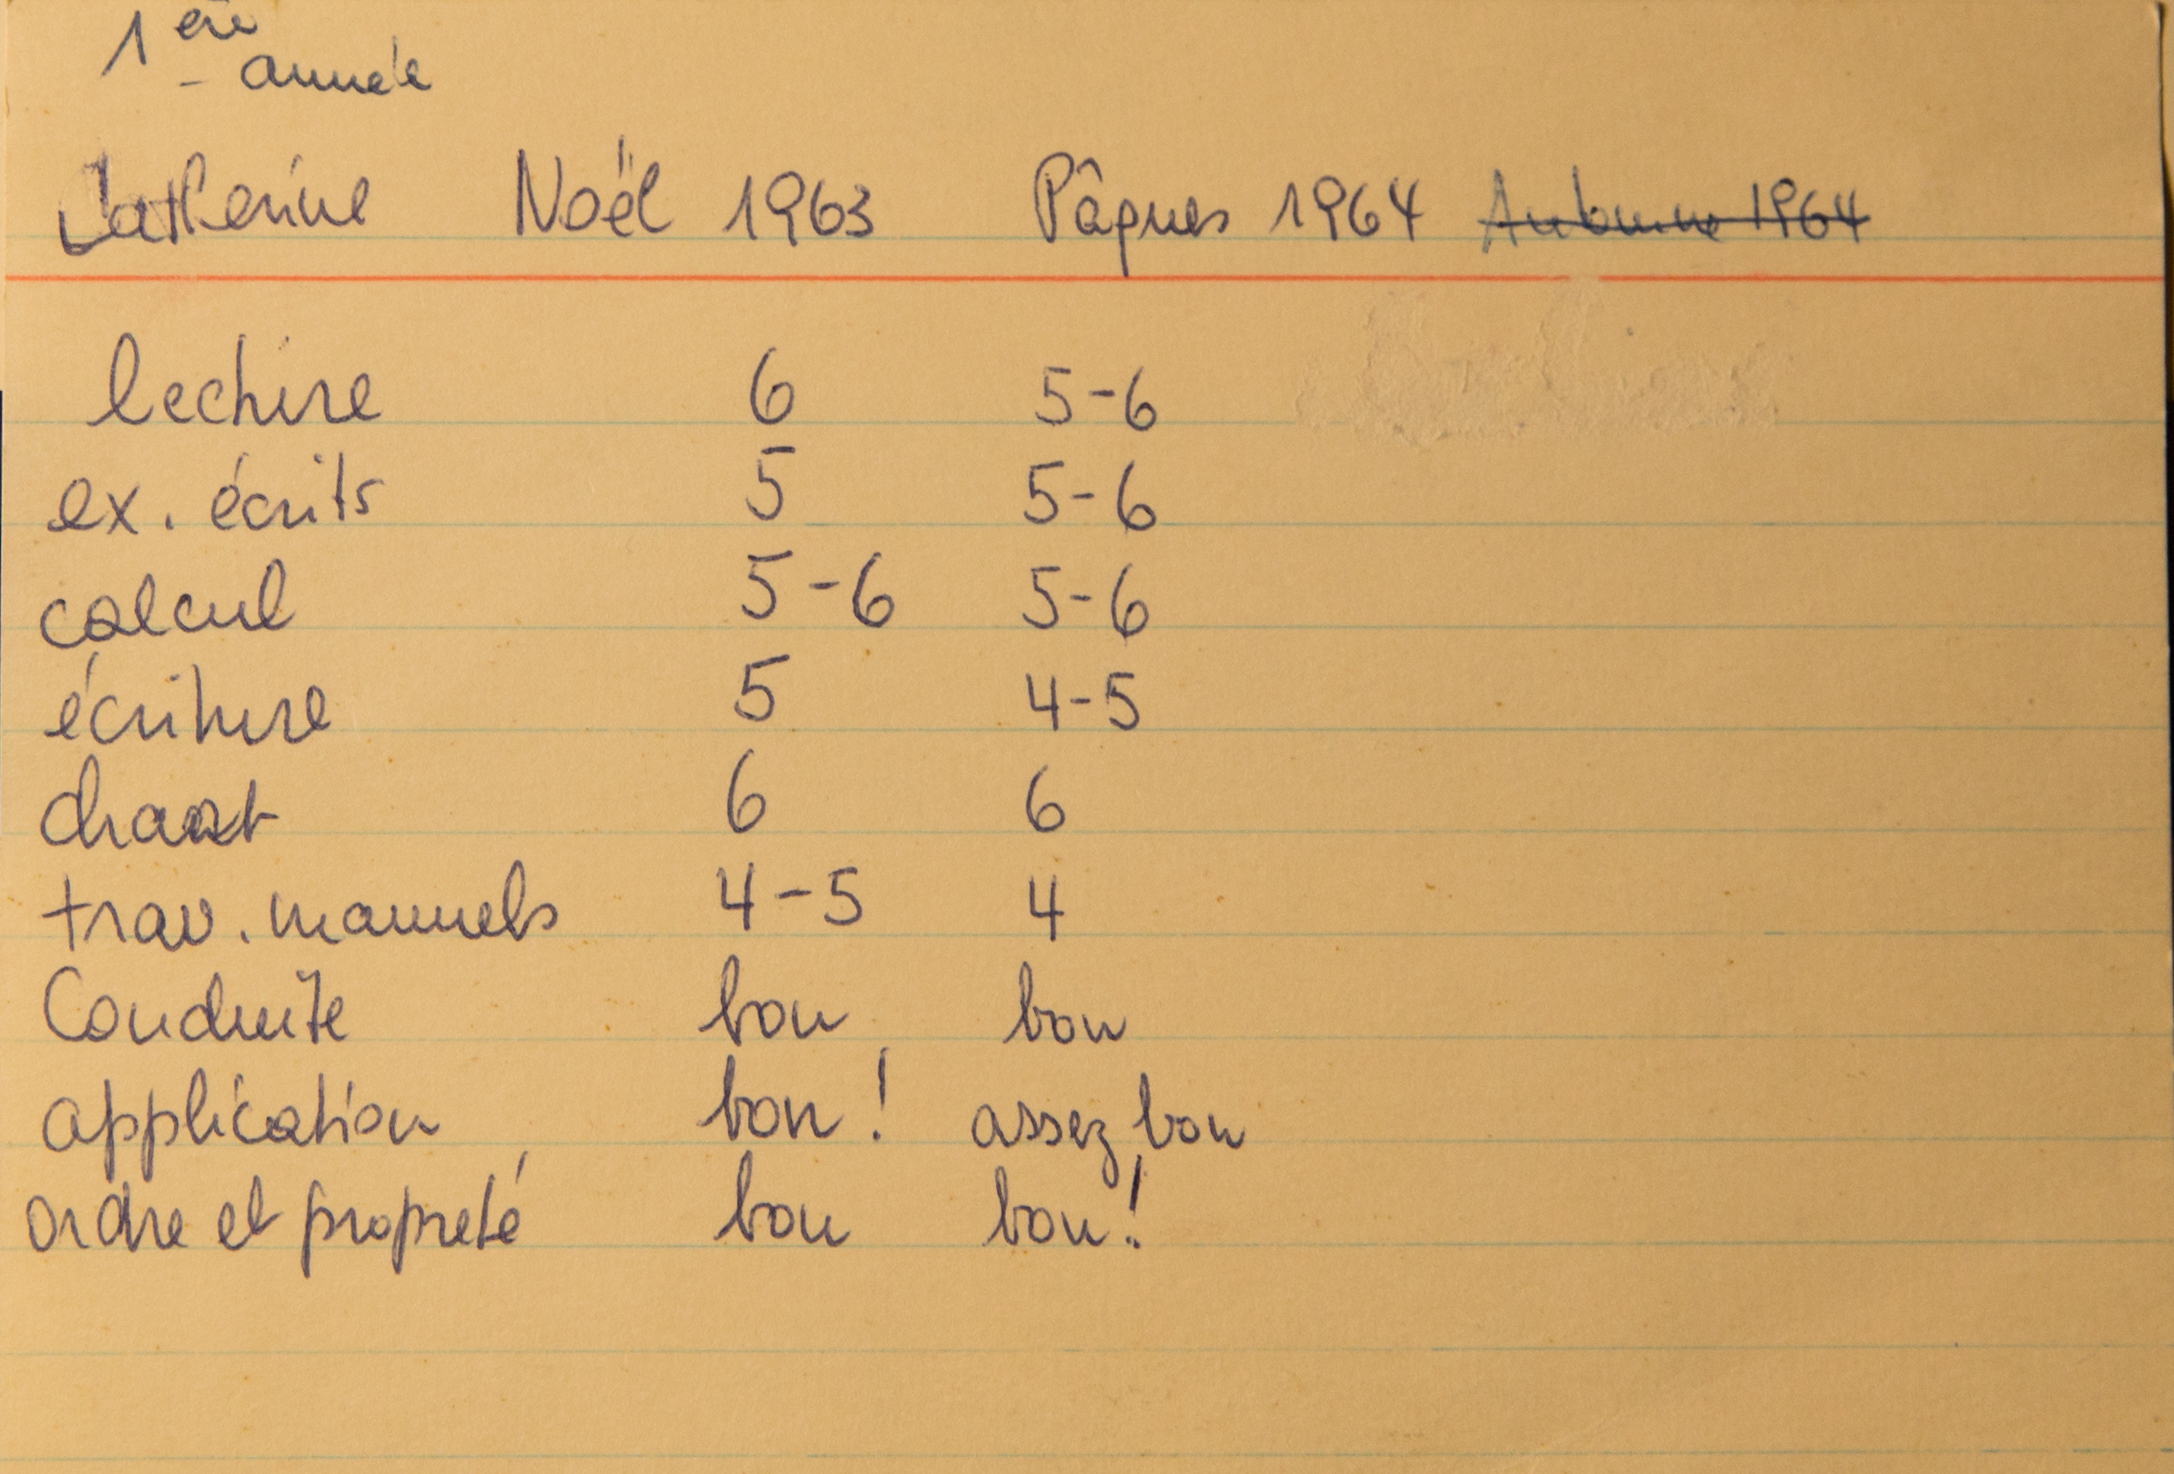 1ère
année
Catherine Noël 1963 Pâques 1964 Automne 1964
lecture 6 5-6
ex. écrits 5 5-6
calcul 5-6 5-6
écriture 5 4-5
chant 6 6
trav. manuels 4-5 4
Conduite bon bon
application bon! assez bon
ordre et propreté bon bon!